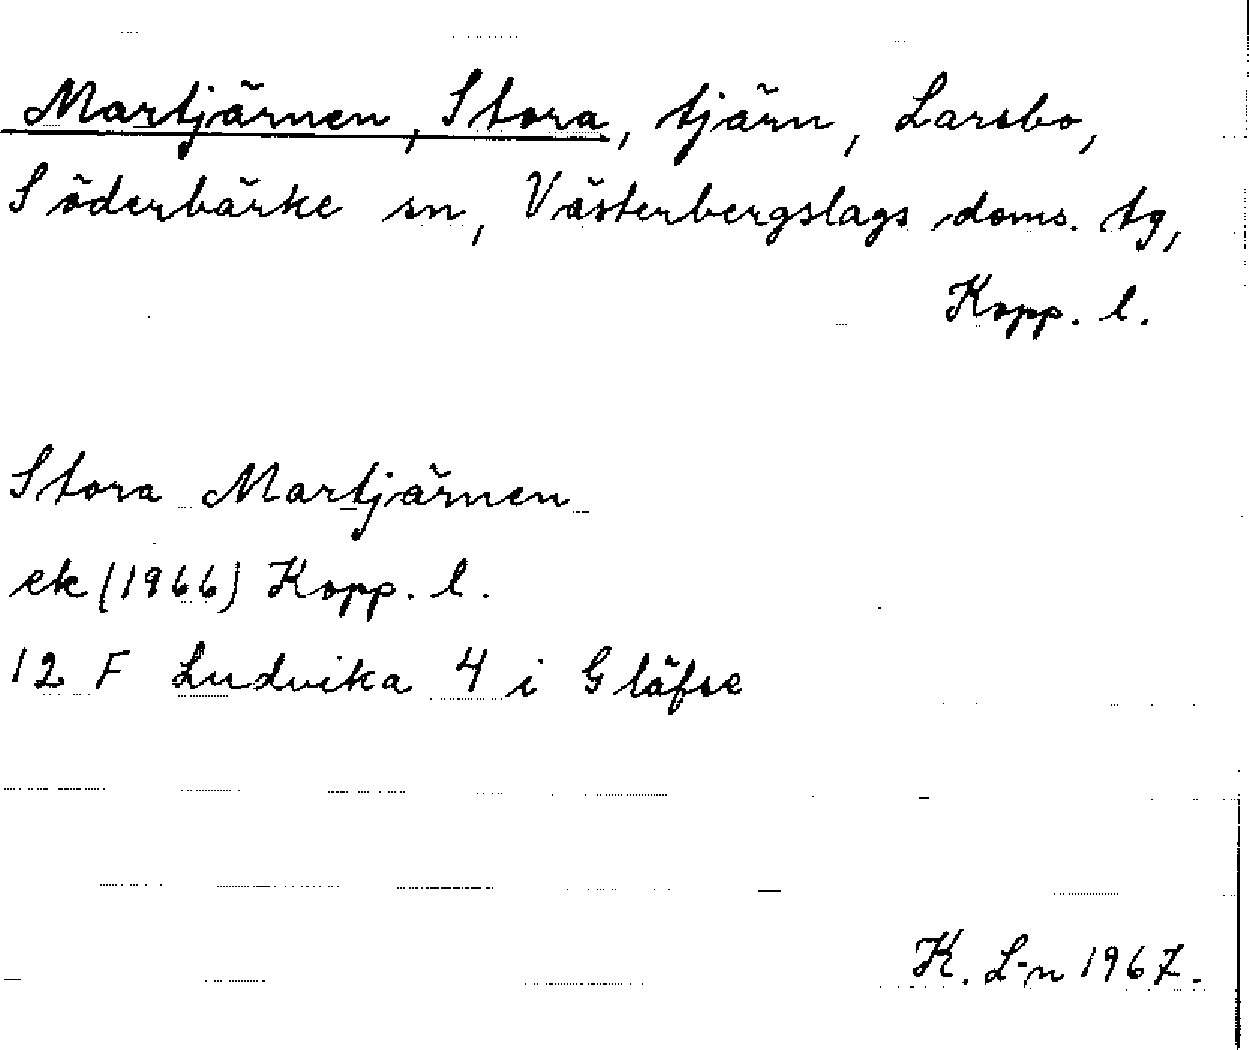 Martjärnen, Stora, tjärn, Larsbo,
Söderbärke sn, Västerbergslags doms. tg,
Kopp. l.
Stora Martjärnen
ek (1966) Kopp. l.
12 F Ludvika 4 i Gläfse
K. L-n 1967.